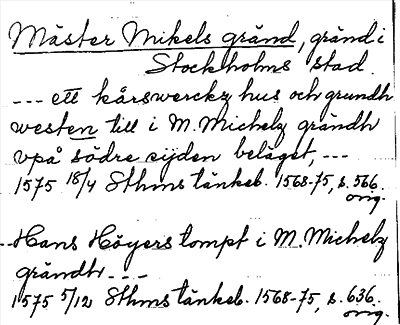 Mäster Mikels gränd, gränd i
Stockholms stad.
--- ett kårswerckz hus och grundh
westen till i M. Michelz grändh
vpå södre sijden beläget, ---
1575 18/4 Sthms tänkeb. 1568-75, s. 566.
orig.
--- Hans Höyers tompt i M. Michelz
grändh ---
1575 5/12 Sthms tänkeb. 1568-75, s. 636.
orig.